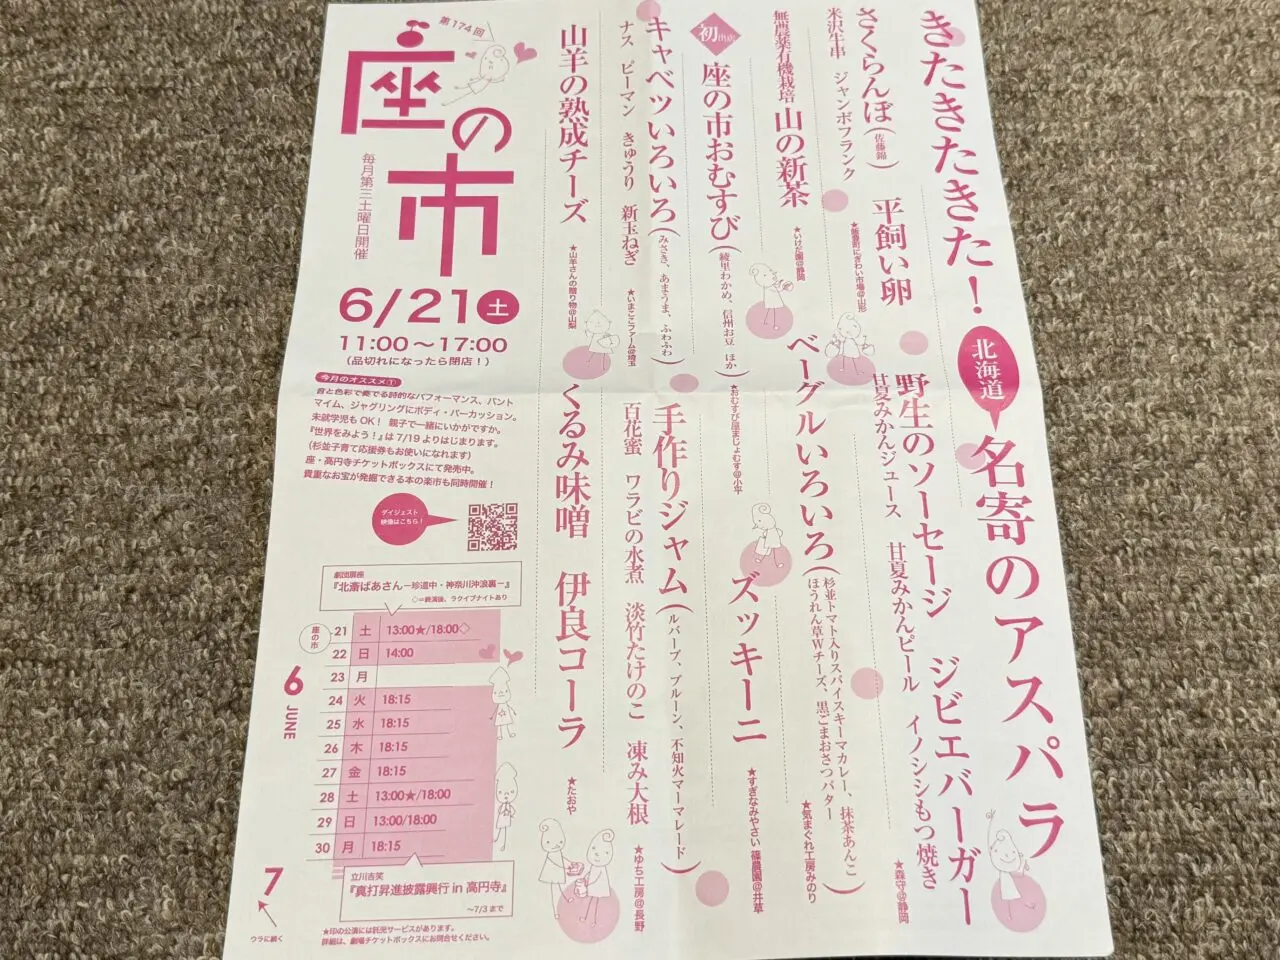 きたきたきた！
北海道
名寄のアスパラ
さくらんぼ(佐藤錦)
平飼い卵
米沢牛串 ジャンボフランク
★飯豊町にぎわい市場@山形
野生のソーセージ ジビエバーガー
甘夏みかんジュース 甘夏みかんピール イノシシもつ焼き
★森守@静岡
無農薬有機栽培 山の新茶
★いけだ園@静岡
ベーグルいろいろ(杉並トマト入りスパイスキーマカレー、抹茶あんこ
ほうれん草Wチーズ、黒ごまおさつバター)
★気まぐれ工房みのり
初出店
座の市おむすび(綾里わかめ、信州お豆 ほか)
★おむすび屋まじょむす@小平
ズッキーニ
★すぎなみやさい 篠農園@井草
キャベツいろいろ(みさき、あまうま、ふわふわ)
ナス ピーマン きゅうり 新玉ねぎ
★いまここファーム@埼玉
手作りジャム(ルバーブ、プルーン、不知火マーマレード)
百花蜜 ワラビの水煮 淡竹たけのこ 凍み大根
★ゆち工房@長野
山羊の熟成チーズ
★山羊さんの贈り物@山梨
くるみ味噌 伊良コーラ
★たおや
第174回
座の市
毎月第三土曜日開催
6/21土
11:00〜17:00
(品切れになったら閉店！)
今月のオススメ①
音と色彩で奏でる詩的なパフォーマンス、パント
マイム、ジャグリングにボディ・パーカッション。
未就学児もOK！ 親子で一緒にいかがですか。
『世界をみよう！』は7/19よりはじまります。
(杉並子育て応援券もお使いになれます)
座・高円寺チケットボックスにて発売中。
貴重なお宝が発掘できる本の楽市も同時開催！
ダイジェスト
映像はこちら！
劇団扉座
『北斎ばあさん−珍道中・神奈川沖浪裏−』
◇＝終演後、ラクイブナイトあり
座の市
6 JUNE
21 土 13:00★/18:00◇
22 日 14:00
23 月
24 火 18:15
25 水 18:15
26 木 18:15
27 金 18:15
28 土 13:00★/18:00
29 日 13:00/18:00
30 月 18:15
立川吉笑
『真打昇進披露興行 in 高円寺』
〜7/3まで
7
ウラに続く
★印の公演には託児サービスがあります。
詳細は、劇場チケットボックスにお問合せください。